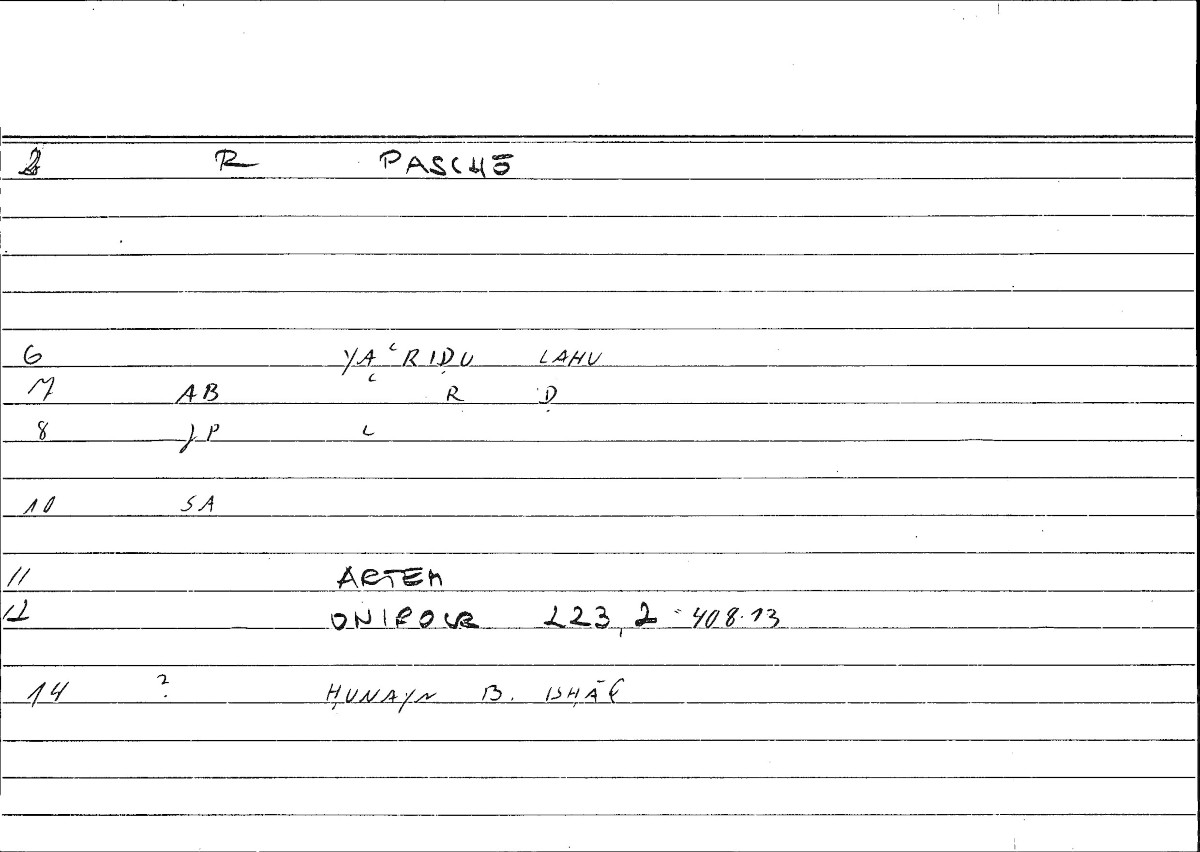 2 R PASCHŌ
6 YAʿRIḌU LAHU
7 AB ʿ R Ḍ
8 JP L
10 SA
11 ARTEM
12 ONIROCR 223,2 = 408.13
14 ? ḤUNAYN B. ISḤĀḲ